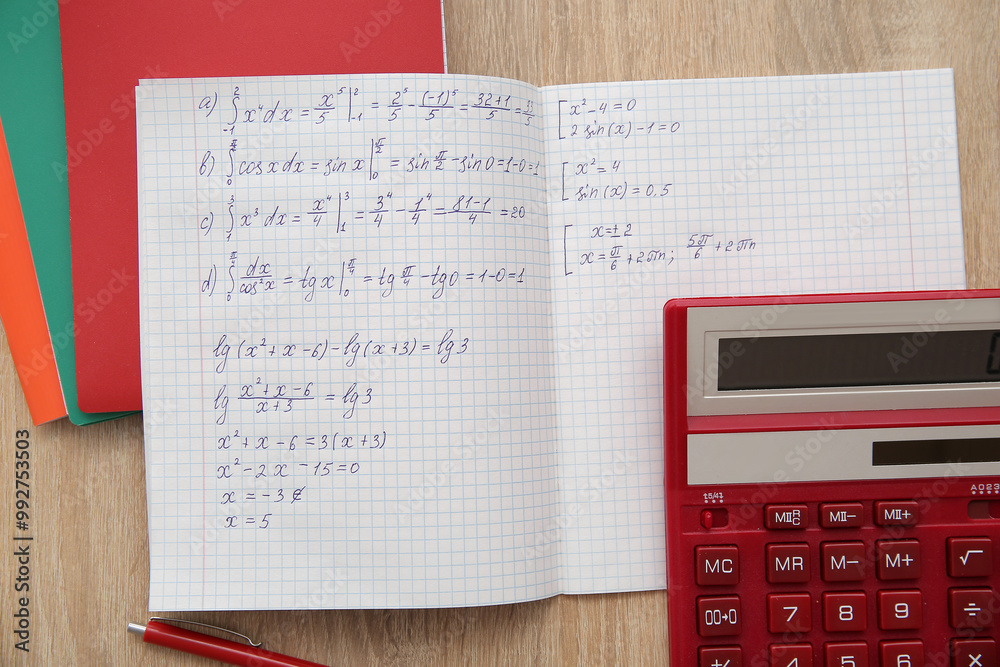 a) ∫₋₁² x⁴dx = x⁵/5 |₋₁² = 2⁵/5 - (-1)⁵/5 = 32+1/5 = 33/5
b) ∫₀^(π/2) cos x dx = sin x |₀^(π/2) = sin π/2 - sin 0 = 1-0 = 1
c) ∫₁³ x³ dx = x⁴/4 |₁³ = 3⁴/4 - 1⁴/4 = 81-1/4 = 20
d) ∫₀^(π/4) dx/cos²x = tg x |₀^(π/4) = tg π/4 - tg 0 = 1-0 = 1
lg (x²+x-6) - lg (x+3) = lg 3
lg x²+x-6/x+3 = lg 3
x² + x - 6 = 3(x+3)
x² - 2x - 15 = 0
x = -3 ∉
x = 5
x² - 4 = 0
2 sin(x) - 1 = 0
x² = 4
sin(x) = 0,5
x = ± 2
x = π/6 + 2πn; 5π/6 + 2πn
MC MR M- M+ √
00→0 7 8 9 ÷
+/- 4 5 6 ×
Adobe Stock | #992753503